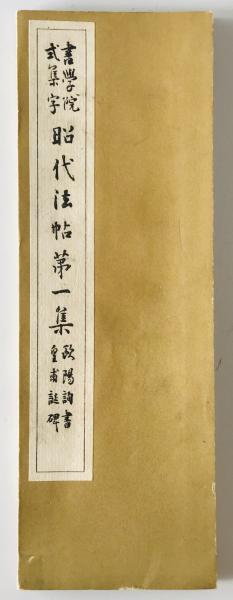 書學院
式集字
昭代法帖第一集
歐陽詢書
皇甫誕碑